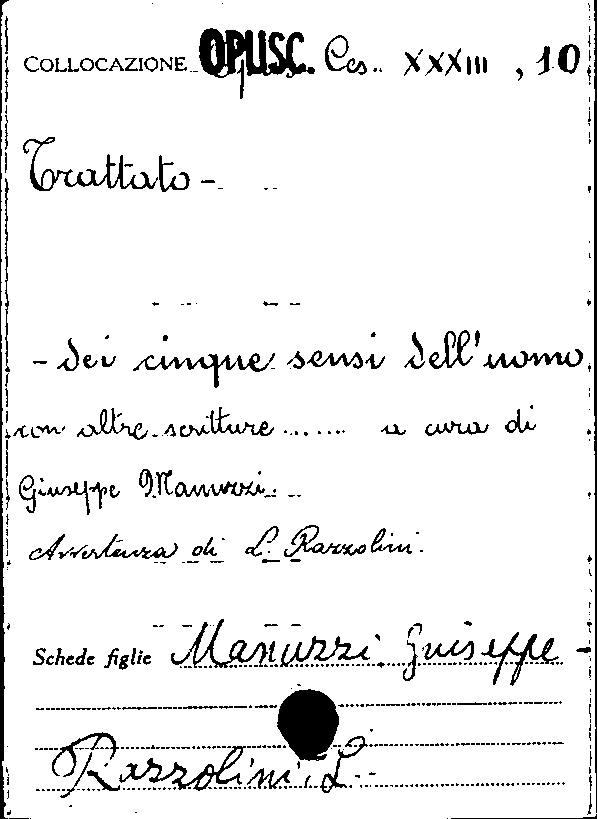 COLLOCAZIONE OPUSC. Ces. XXXIII, 10
Trattato -
- dei cinque sensi dell'uomo
con altre scritture ....... a cura di
Giuseppe Manuzzi.
Avvertenza di L. Razzolini.
Schede figlie Manuzzi Giuseppe -
Razzolini L.